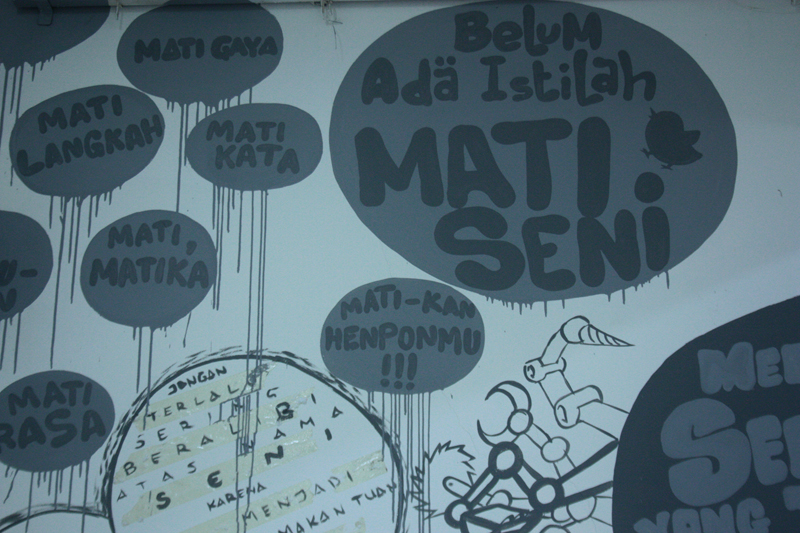 MATI GAYA
MATI
LANGKAH
MATI
KATA
BELUM
ADÄ ISTILAH
MATI
SENI
MATI,
MATIKA
MATI-KAN
HENPONMU
!!!
MATI
RASA
JANGAN
TERLALU
SERING
BERALIBI
ATAS NAMA
SENI
KARENA
MENJADI
MAKAN TUAN
SE
YANG